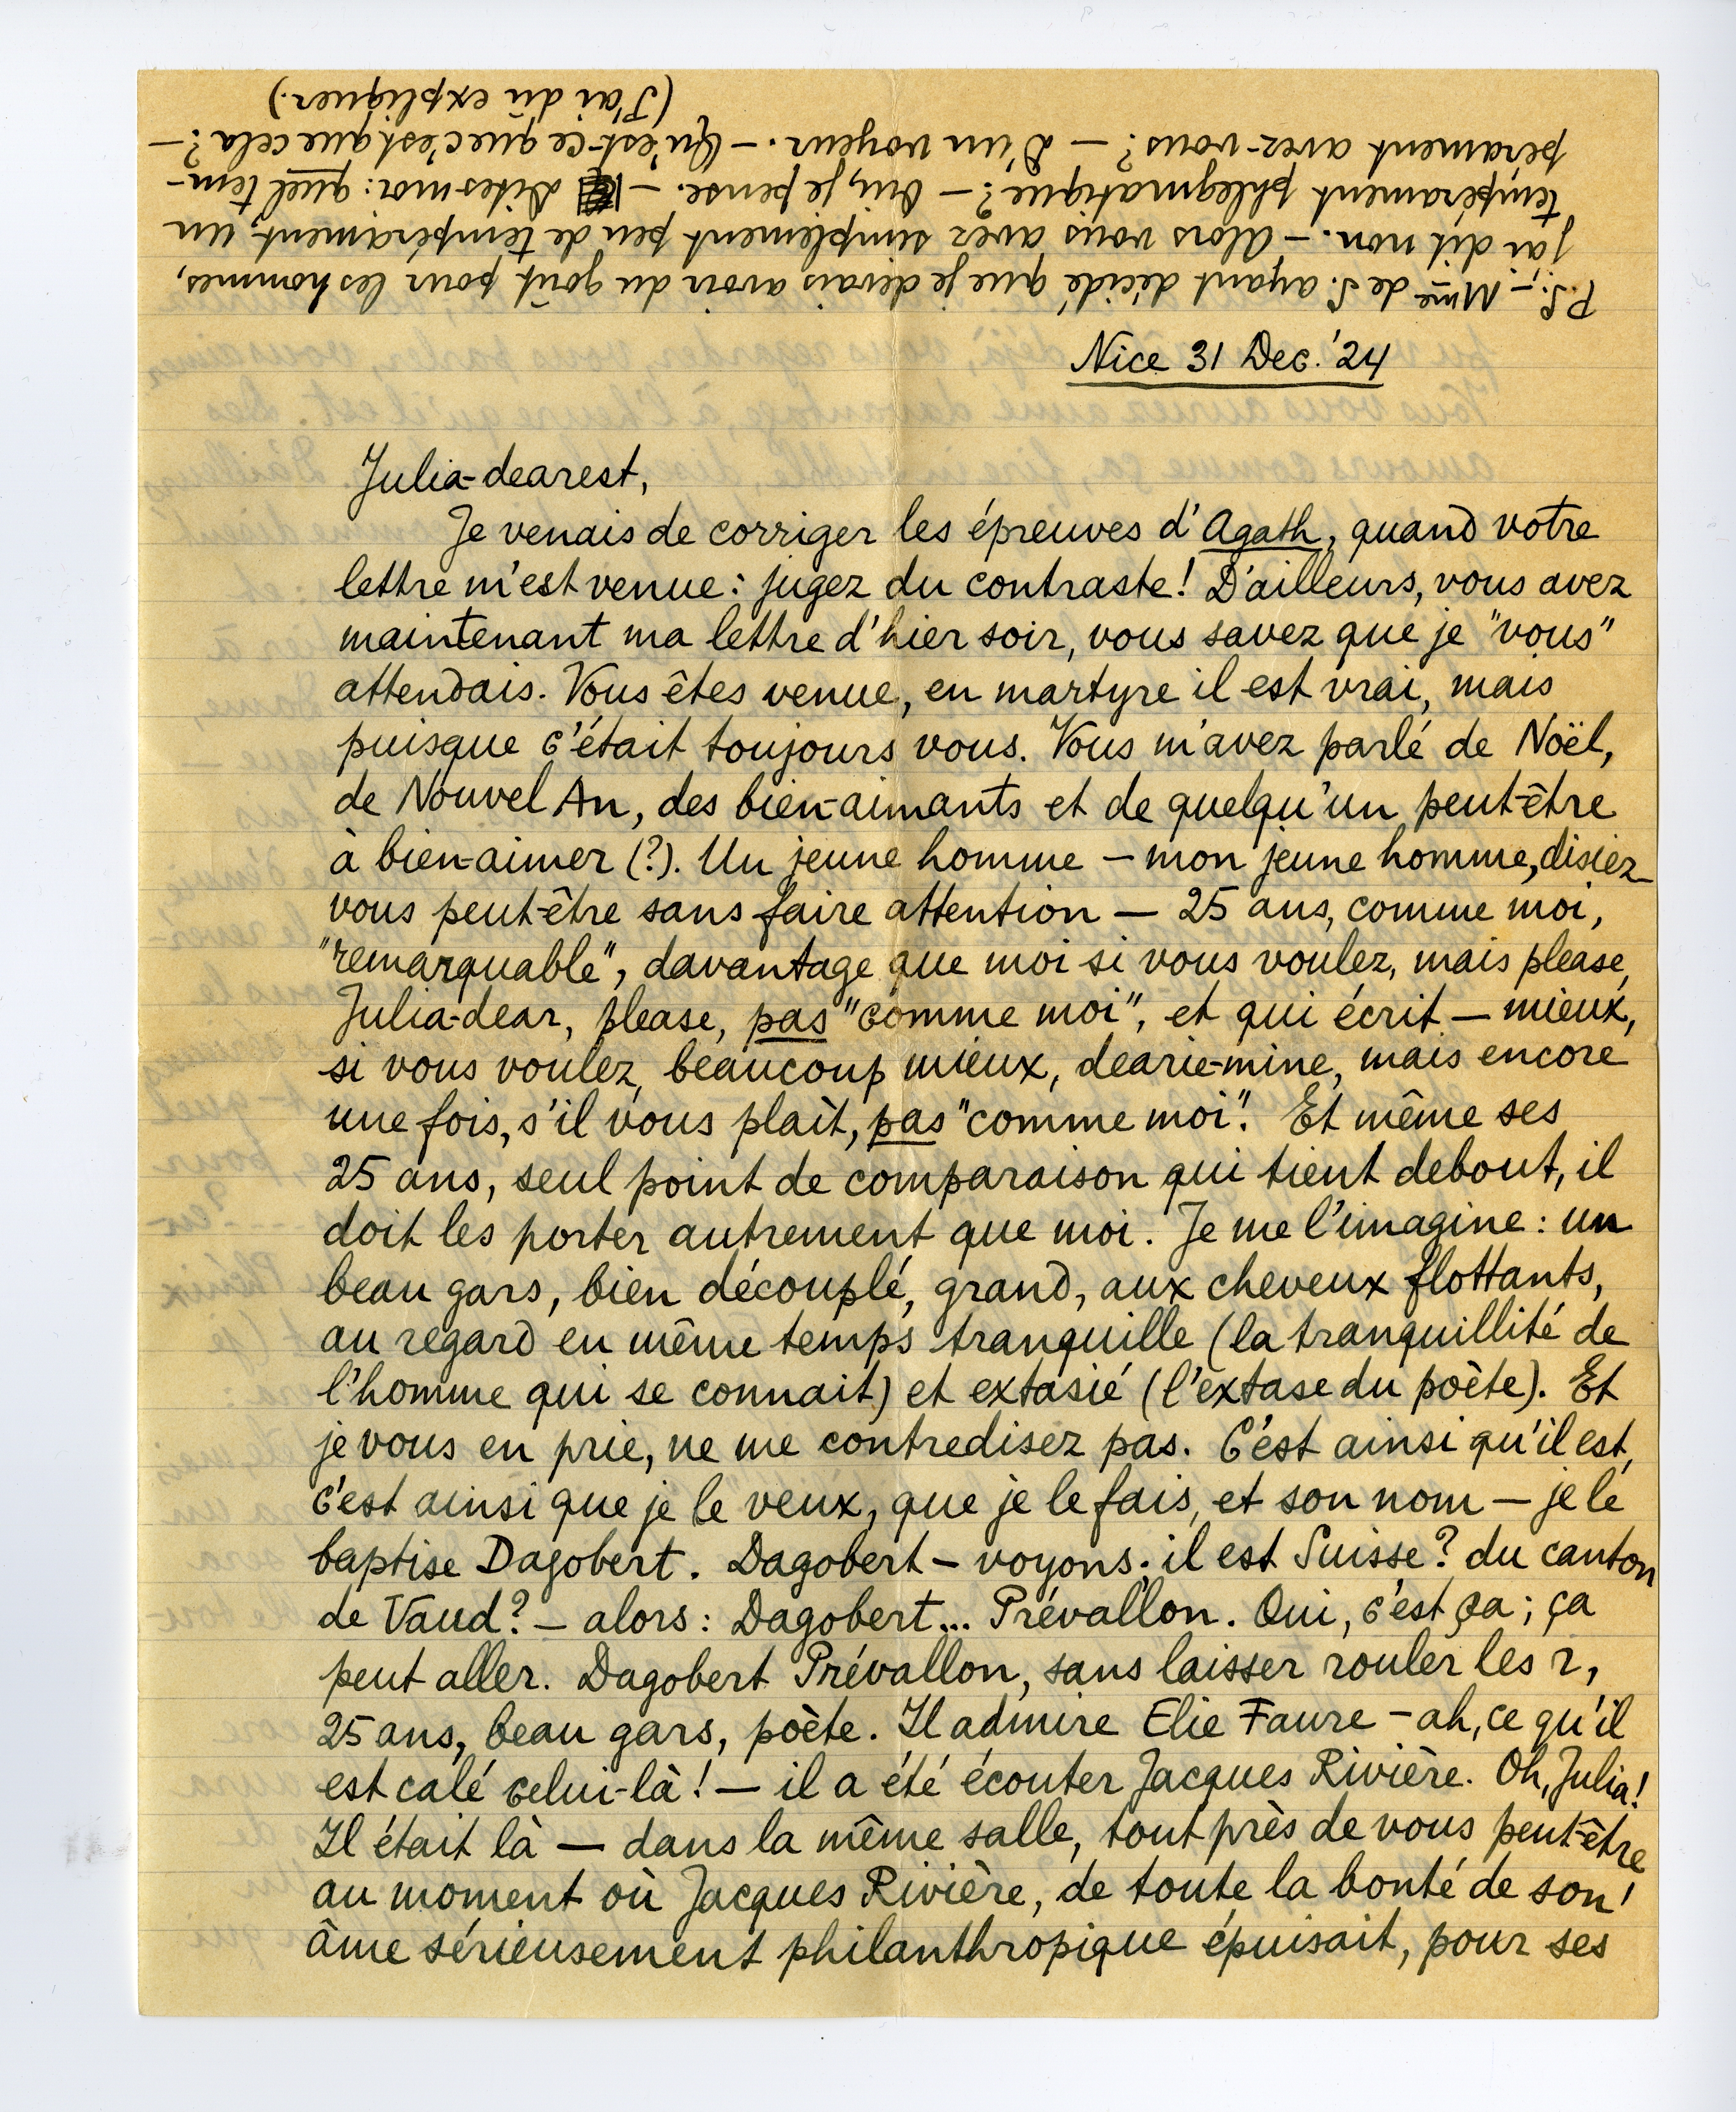 P.S. — Mme de S. ayant décidé que je devais avoir du goût pour les hommes,
j'ai dit non. — Alors vous avez simplement peu de tempérament; un
tempérament phlegmatique? — Oui, je pense. — Dites-moi: quel tem-
pérament avez-vous? — D'un voyeur. — Qu'est-ce que c'est que cela? —
(J'ai dû expliquer.)
Nice 31 Dec. '24
Julia-dearest,
Je venais de corriger les épreuves d'Agath, quand votre
lettre m'est venue: jugez du contraste! D'ailleurs, vous avez
maintenant ma lettre d'hier soir, vous savez que je "vous"
attendais. Vous êtes venue, en martyre il est vrai, mais
puisque c'était toujours vous. Vous m'avez parlé de Noël,
de Nouvel An, des bien-aimants et de quelqu'un peut-être
à bien-aimer (?). Un jeune homme — mon jeune homme, disiez-
vous peut-être sans faire attention — 25 ans, comme moi,
"remarquable", davantage que moi si vous voulez, mais please,
Julia-dear, please, pas "comme moi", et qui écrit — mieux,
si vous voulez, beaucoup mieux, dearie-mine, mais encore
une fois, s'il vous plaît, pas "comme moi". Et même ses
25 ans, seul point de comparaison qui tient debout, il
doit les porter autrement que moi. Je me l'imagine: un
beau gars, bien découplé, grand, aux cheveux flottants,
au regard en même temps tranquille (la tranquillité de
l'homme qui se connait) et extasié (l'extase du poète). Et
je vous en prie, ne me contredisez pas. C'est ainsi qu'il est,
c'est ainsi que je le veux, que je le fais, et son nom — je le
baptise Dagobert. Dagobert — voyons: il est Suisse? du canton
de Vaud? — alors: Dagobert... Prévallon. Oui, c'est ça; ça
peut aller. Dagobert Prévallon, sans laisser rouler les r,
25 ans, beau gars, poète. Il admire Elie Faure — ah, ce qu'il
est calé celui-là! — il a été écouter Jacques Rivière. Oh, Julia!
Il était là — dans la même salle, tout près de vous peut-être
au moment où Jacques Rivière, de toute la bonté de son
âme sérieusement philanthropique épuisait, pour ses